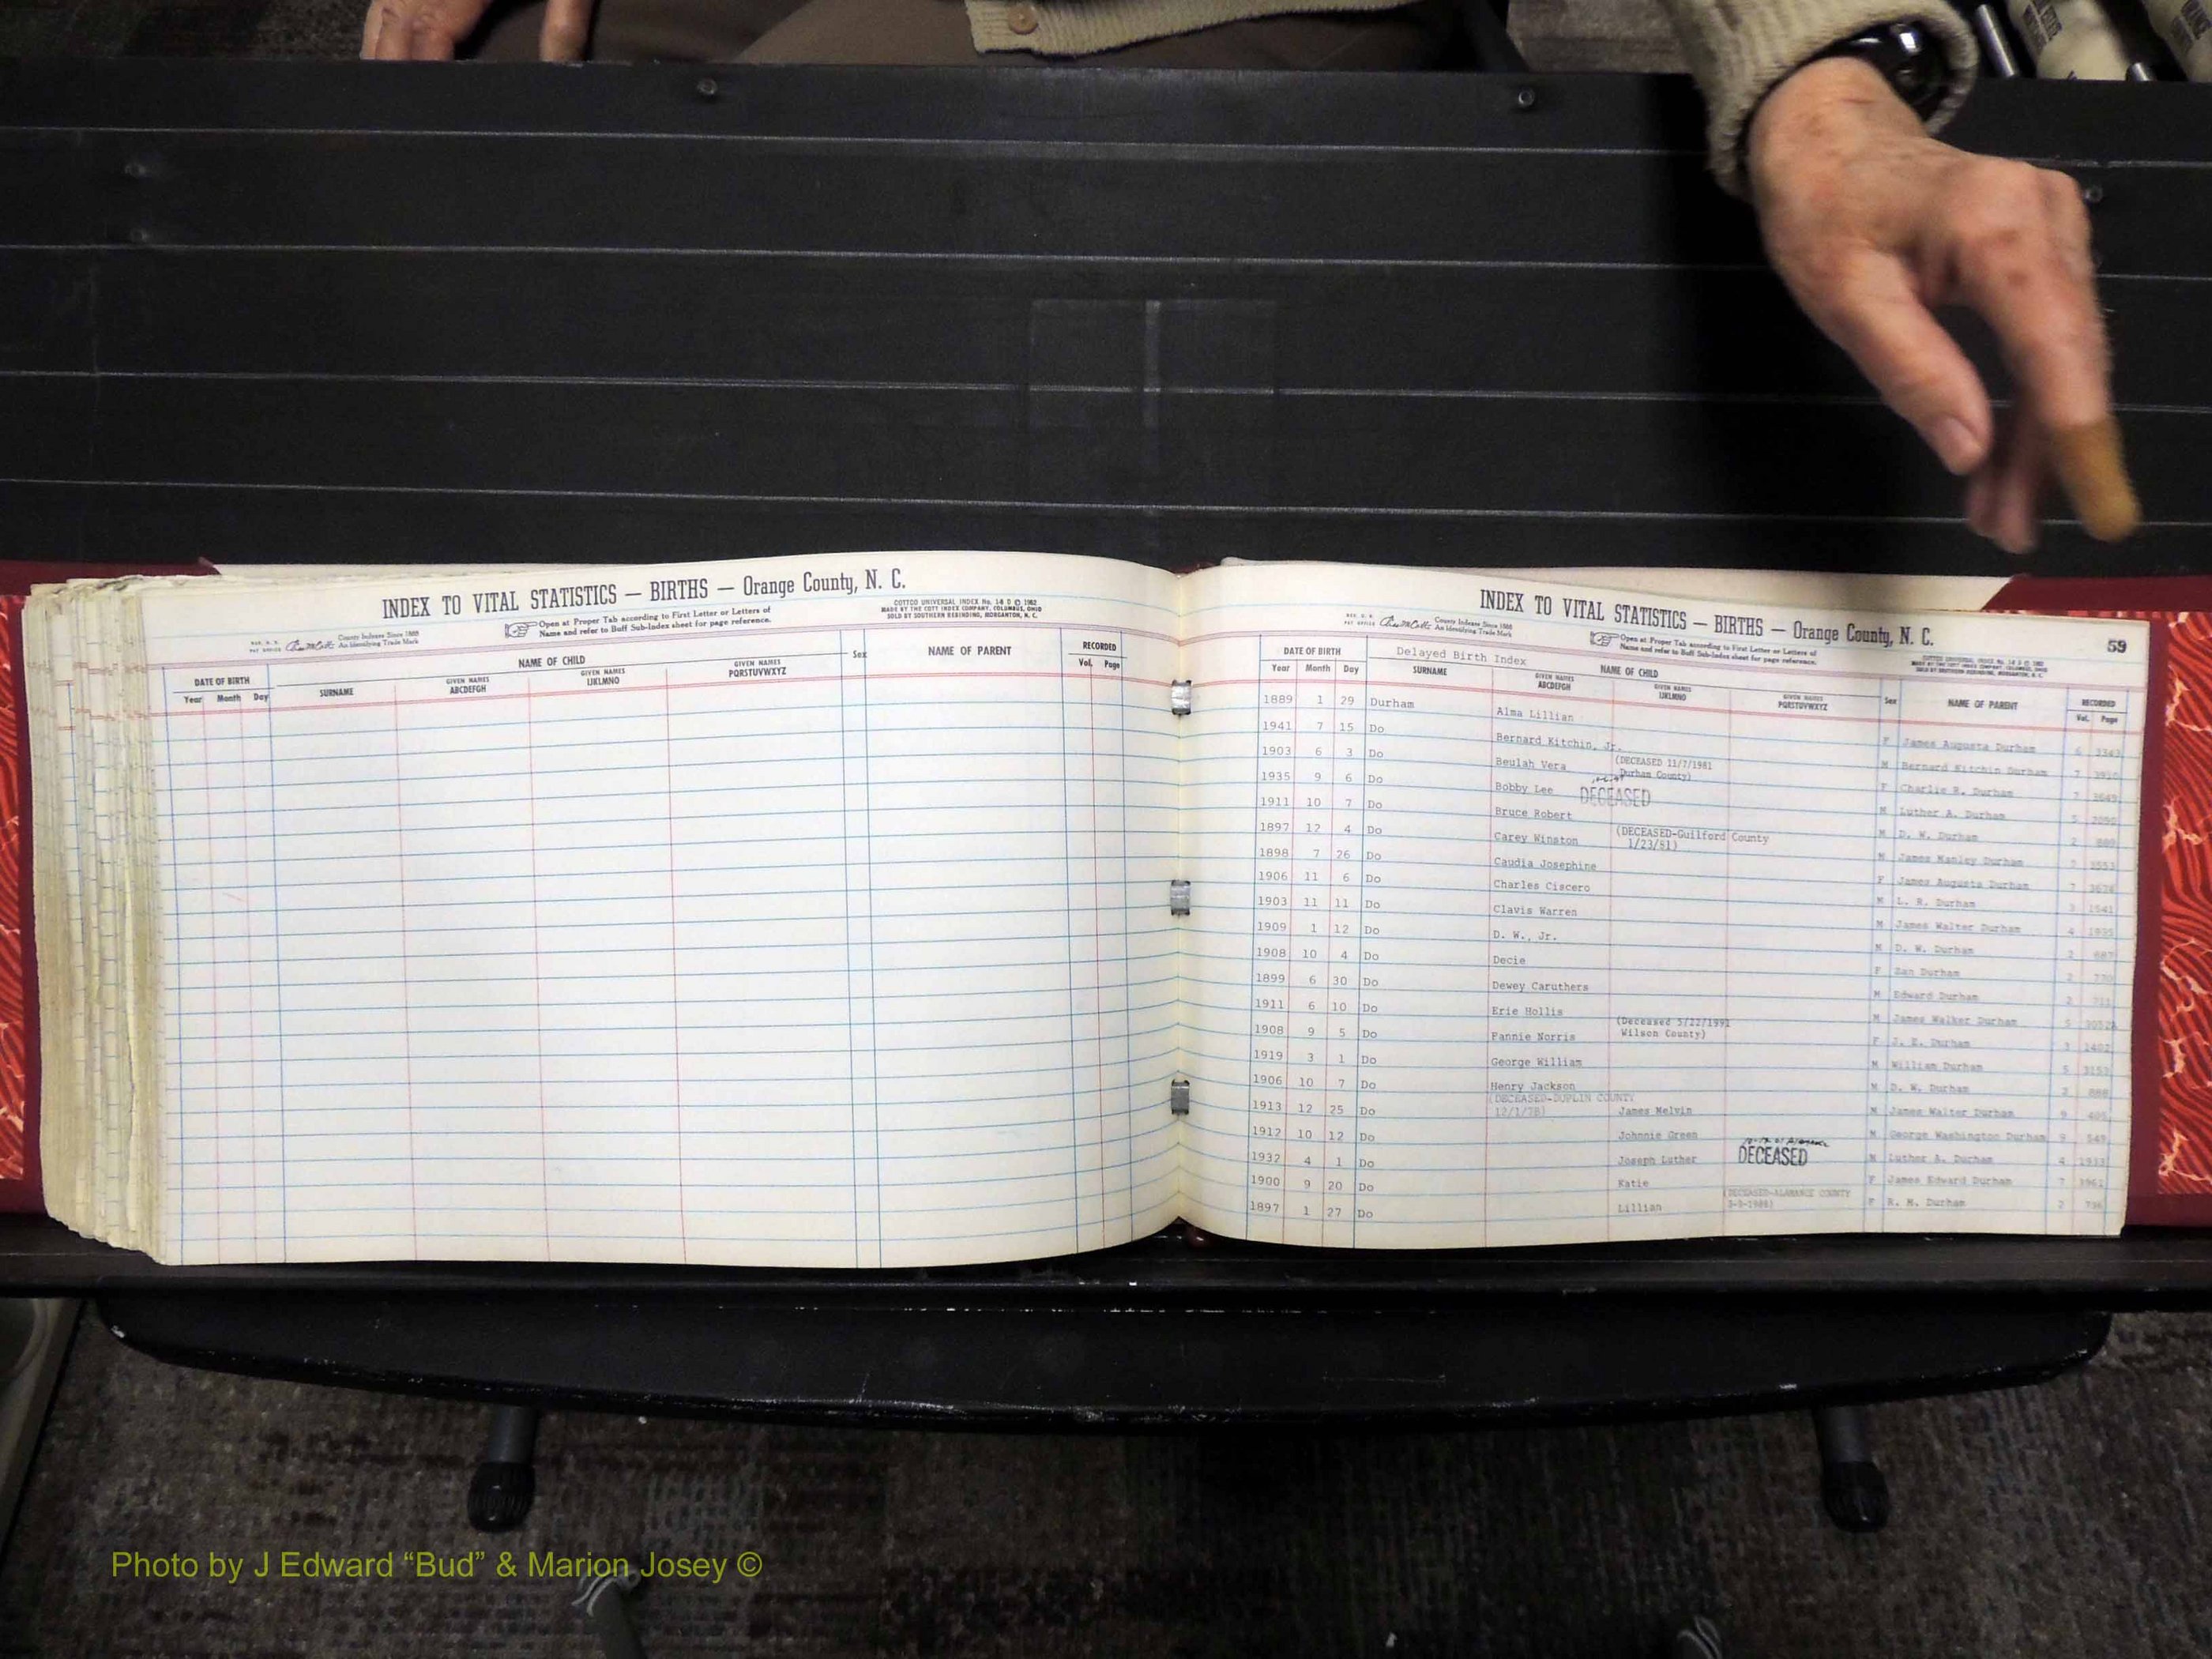 INDEX TO VITAL STATISTICS — BIRTHS — Orange County, N. C.
County Indexes Since 1888
An Identifying Trade Mark
Open at Proper Tab according to First Letter or Letters of
Name and refer to Buff Sub-Index sheet for page reference.
COTTCO UNIVERSAL INDEX No. 14 D © 1962
MADE BY THE COTT INDEX COMPANY, COLUMBUS, OHIO
SOLD BY SOUTHERN REBINDING, MORGANTON, N. C.
DATE OF BIRTH NAME OF CHILD Sex NAME OF PARENT RECORDED
Year Month Day SURNAME GIVEN NAMES ABCDEFGH GIVEN NAMES IJKLMNO GIVEN NAMES PQRSTUVWXYZ Vol. Page
INDEX TO VITAL STATISTICS — BIRTHS — Orange County, N. C.
59
County Indexes Since 1888
An Identifying Trade Mark
Open at Proper Tab according to First Letter or Letters of
Name and refer to Buff Sub-Index sheet for page reference.
Delayed Birth Index
DATE OF BIRTH NAME OF CHILD Sex NAME OF PARENT RECORDED
Year Month Day SURNAME GIVEN NAMES ABCDEFGH GIVEN NAMES IJKLMNO GIVEN NAMES PQRSTUVWXYZ Vol. Page
1889 1 29 Durham Alma Lillian F James Augusta Durham 6
1941 7 15 Do Bernard Kitchin, Jr. M Bernard Kitchin Durham 7
1903 6 3 Do Beulah Vera (DECEASED 11/7/1981 Durham County) F Charlie R. Durham 7
1935 9 6 Do Bobby Lee DECEASED M Luther A. Durham 5
1911 10 7 Do Bruce Robert M D. W. Durham 2
1897 12 4 Do Carey Winston (DECEASED-Guilford County 1/23/81) M James Manley Durham
1898 7 26 Do Caudia Josephine F James Augusta Durham 7
1906 11 6 Do Charles Ciscero M L. R. Durham 3 1541
1903 11 11 Do Clavis Warren M James Walter Durham 4
1909 1 12 Do D. W., Jr. M D. W. Durham 2 887
1908 10 4 Do Decie F Durham 2
1899 6 30 Do Dewey Caruthers M Edward Durham 2
1911 6 10 Do Erie Hollis M James Walker Durham
1908 9 5 Do Fannie Norris (Deceased 5/22/1991 Wilson County) F J. E. Durham
1919 3 1 Do George William M William Durham 5 3153
1906 10 7 Do Henry Jackson M D. W. Durham 2 888
1913 12 25 Do (DECEASED-DUPLIN COUNTY 12/1/78) James Melvin M James Walter Durham 9
1912 10 12 Do Johnnie Green M George Washington Durham 9 549
1932 4 1 Do Joseph Luther DECEASED M Luther A. Durham 4
1900 9 20 Do Katie F James Edward Durham 7 3961
1897 1 27 Do Lillian (DECEASED-ALAMANCE COUNTY 3-3-1986) F R. M. Durham 2
Photo by J Edward “Bud” & Marion Josey ©